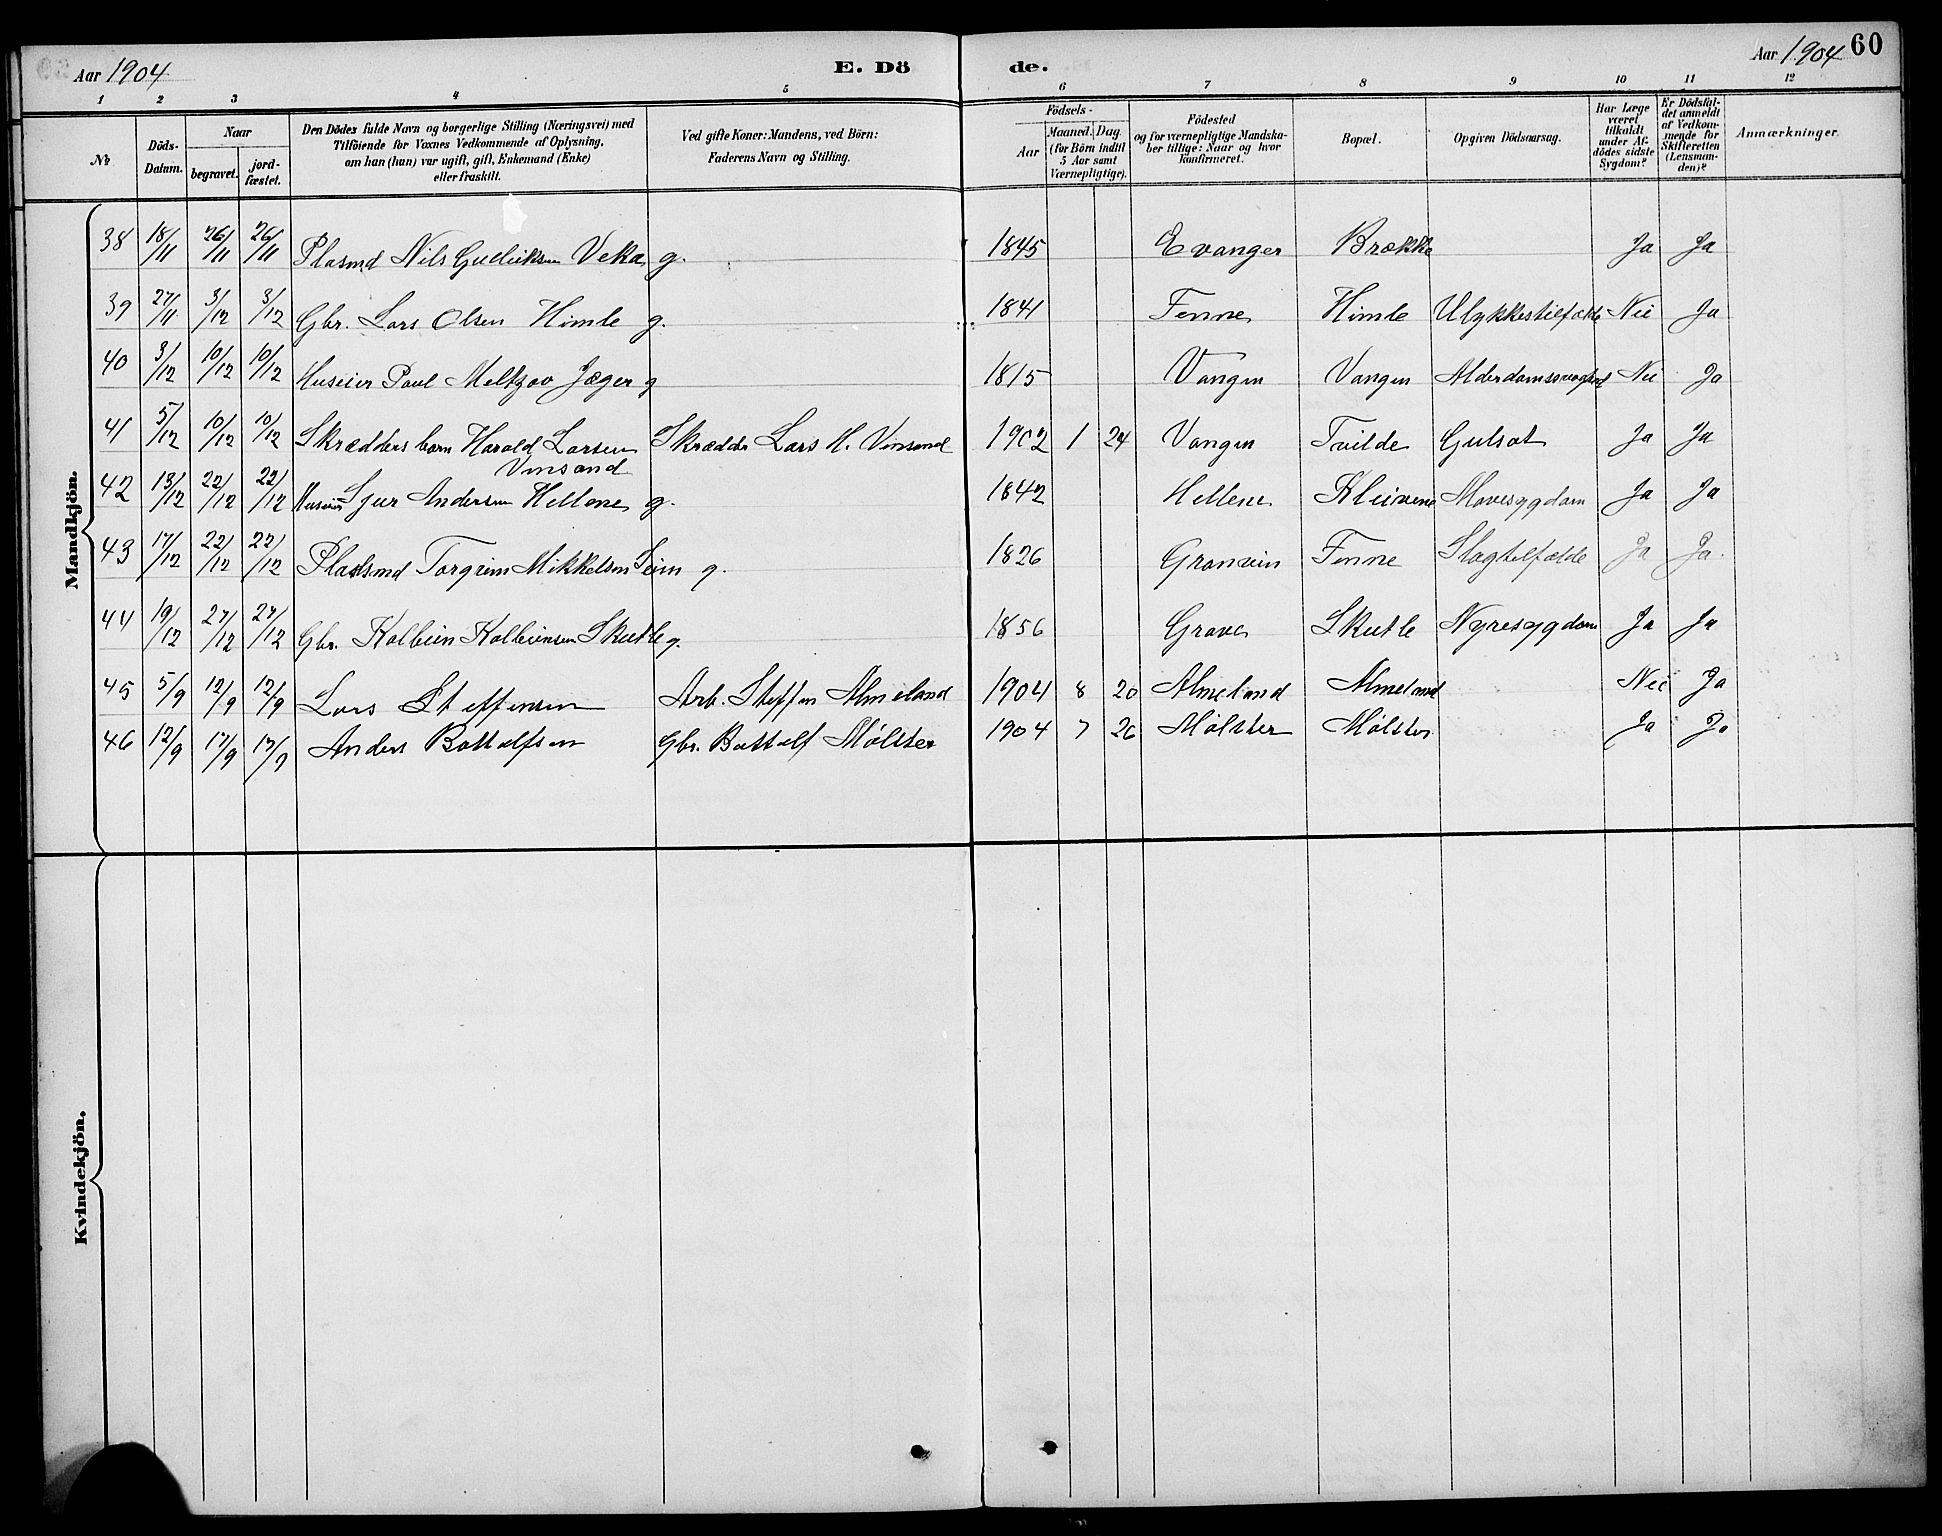 Aar 1904
E. Dö de.
Aar 1904 60
1 2 3 4 5 6 7 8 9 10 11 12
No
Döds-Datum.
Naar
begravet.
jord-fæstet.
Den Dödes fulde Navn og borgerlige Stilling (Næringsvei) med
Tilföiende for Voxnes Vedkommende af Oplysning,
om han (hun) var ugift, gift, Enkemand (Enke)
eller fraskilt.
Ved gifte Koner: Mandens, ved Börn:
Faderens Navn og Stilling.
Födsels-
Aar
Maaned. Dag.
(for Börn indtil
5 Aar samt
Værnepligtige).
Födested
og for værnepligtige Mandska-
ber tillige: Naar og hvor
konfirmeret.
Bopæl.
Opgiven Dödsaarsag.
Har Læge
været
tilkaldt
under Af-
dödes sidste
Sygdom?
Er Dödsfal-
det anmeldt
af Vedkom-
mende for
Skifteretten
(Lensman-
den)?
Anmærkninger.
Mandkjön.
38 18/11 26/11 26/11 Plasmd Nils Gulleiksen Veka g. 1845 Evanger Brække Ja Ja
39 27/11 3/12 3/12 Gbr. Lars Olsen Himle g. 1841 Finne Himle Ulykkestilfælde Nei Ja
40 3/12 10/12 10/12 Huseier Paul Meltzov Jæger g 1815 Vangen Vangen Alderdomssvaghed Nei Ja
41 5/12 10/12 10/12 Skrædders barn Harald Larsen Skrædder Lars H. Vinsand 1902 1 24 Vangen Tvilde Gulsot Ja Ja
Vinsand
42 13/12 22/12 22/12 Huseier Sjur Andersen Hellene g. 1842 Hellene Kleivene Mavesygdom Ja Ja
43 17/12 22/12 22/12 Pladsmd Torgrim Mikkelsen Seim g. 1826 Granvin Finne Slagtilfælde Ja Ja.
44 19/12 27/12 27/12 Gbr. Kolbein Kolbeinsen Skutle g. 1856 Grave Skutle Nyresygdom Ja Ja
45 5/9 12/9 12/9 Lars Steffensen Arb. Steffen Almeland 1904 8 20 Almeland Almeland Nei Ja
46 12/9 17/9 17/9 Anders Bottolfsen Gbr. Bottolf Mölster 1904 7 26 Mölster Mölster Ja Ja
Kvindekjön.